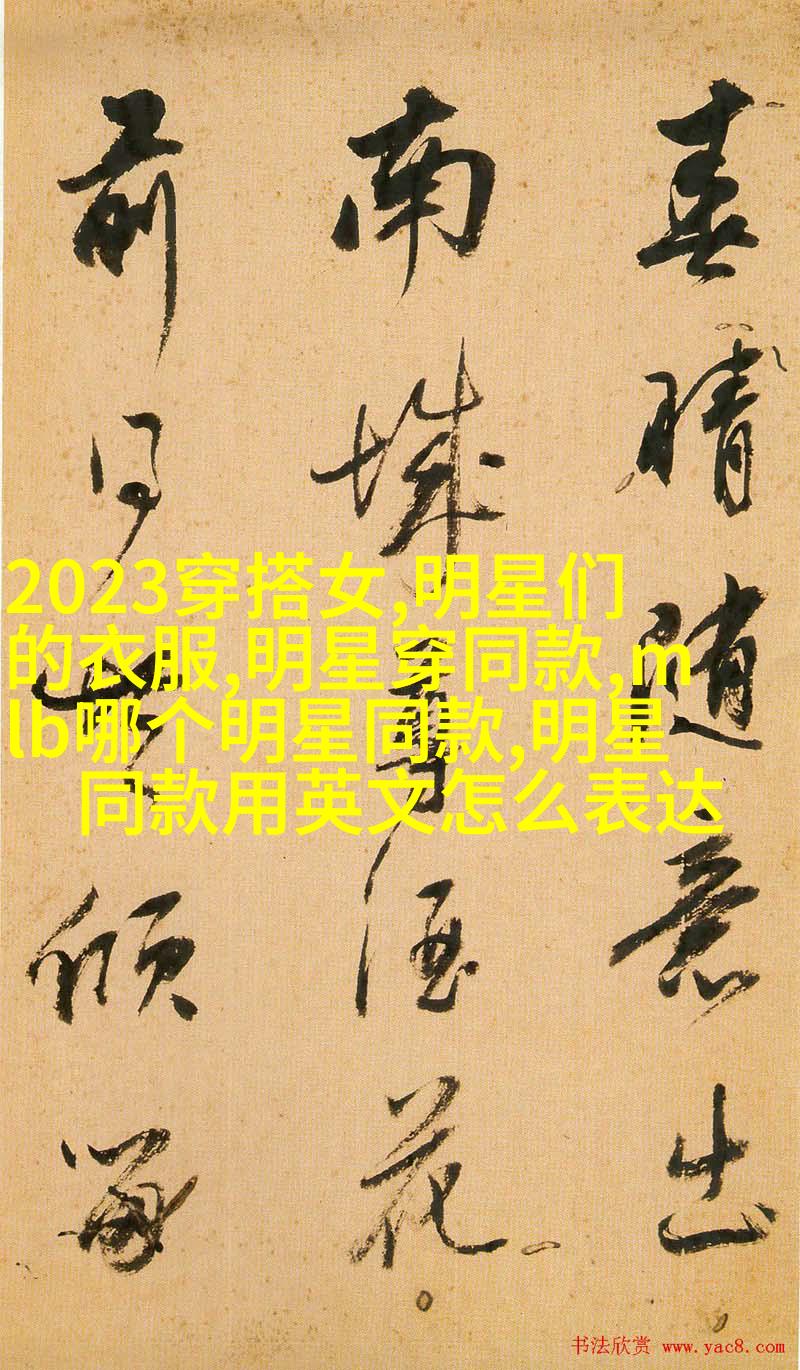 春晴随意出
南城尋酒花
前
2023穿搭女,明星们
的衣服,明星穿同款,m
lb哪个明星同款,明星
同款用英文怎么表达
书法欣赏 www.yac8.com